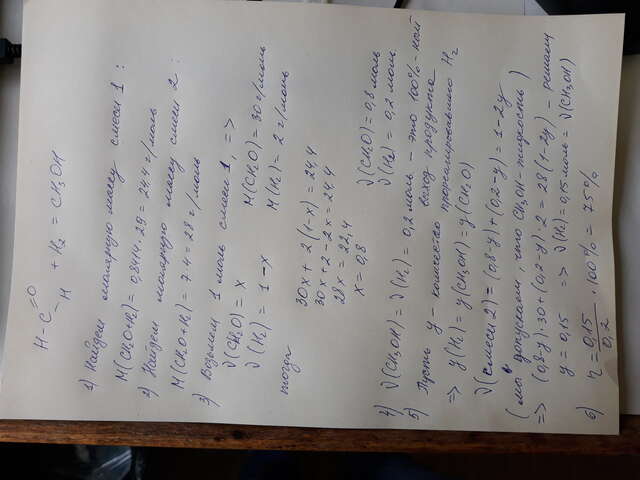 H-C=O-H + H₂ = CH₃OH
1) Найдем молярную массу смеси 1:
M(CH₂O+H₂) = 0,8414·29 = 24,4 г/моль
2) Найдем молярную массу смеси 2:
M(CH₂O+H₂) = 7·4 = 28 г/моль
3) Возьмем 1 моль смеси 1, =>
ν(CH₂O) = x M(CH₂O) = 30 г/моль
ν(H₂) = 1-x M(H₂) = 2 г/моль
тогда
30x + 2(1-x) = 24,4
30x + 2 - 2x = 24,4
28x = 22,4
x = 0,8
ν(CH₂O) = 0,8 моль
ν(H₂) = 0,2 моль
4) ν(CH₃OH) = ν(H₂) = 0,2 моль - это 100%-ный
выход продукта
5) Пусть y - количество прореагировавшего H₂
=> y(H₂) = y(CH₃OH) = y(CH₂O)
ν(смеси 2) = (0,8-y) + (0,2-y) = 1-2y
(мы допускаем, что CH₃OH - жидкость)
=> (0,8-y)·30 + (0,2-y)·2 = 28(1-2y) - решаем
y = 0,15 => ν(H₂) = 0,15 моль = ν(CH₃OH)
6) η = 0,15/0,2 · 100% = 75%